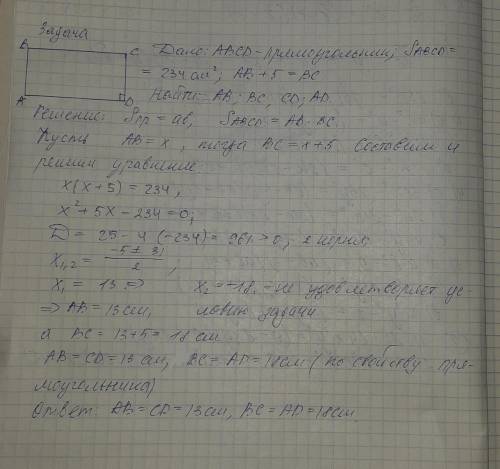 Задача
B C Дано: ABCD - прямоугольник; SABCD =
= 234 см²; AB + 5 = BC
A D Найти: AB; BC, CD; AD.
Решение: Sпр = ab, SABCD = AB · BC
Пусть AB = x, тогда BC = x + 5. Составим и
решим уравнение
x(x + 5) = 234,
x² + 5x - 234 = 0;
D = 25 - 4 · (-234) = 961 > 0, 2 корня
x1,2 = (-5 ± 31)/2,
x1 = 13 => x2 = -18. - не удовлетворяет ус-
=> AB = 13 см, ловию задачи
а BC = 13 + 5 = 18 см
AB = CD = 13 см, BC = AD = 18 см (по свойству пря-
моугольника)
Ответ: AB = CD = 13 см, BC = AD = 18 см